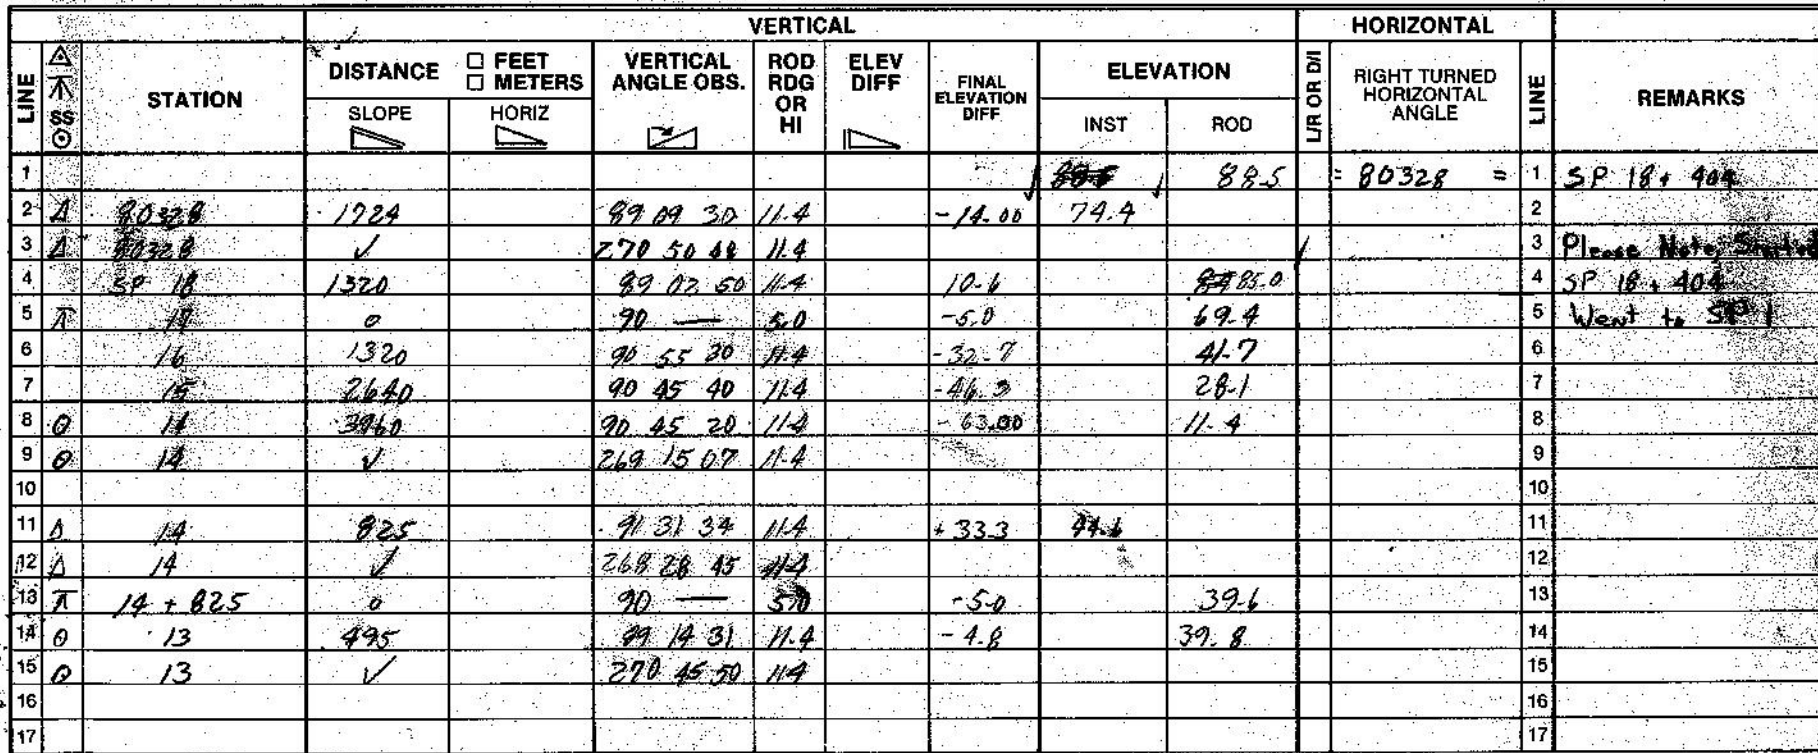 VERTICAL HORIZONTAL
LINE SS STATION DISTANCE FEET METERS SLOPE HORIZ VERTICAL ANGLE OBS. ROD RDG OR HI ELEV DIFF FINAL ELEVATION DIFF ELEVATION INST ROD L/R OR D/I RIGHT TURNED HORIZONTAL ANGLE LINE REMARKS
1 88.5 = 80328 = 1 SP 18 + 404
2 Δ 80328 1724 89 09 30 11.4 -14.00 74.4 2
3 Δ 80328 ✓ 270 50 11.4 3 Please Note, Started
4 SP 18 1320 89 02 50 11.4 10.6 85.0 4 SP 18 + 404
5 17 0 90 — 5.0 -5.0 69.4 5 Went to SP 1
6 16 1320 90 55 20 11.4 -32.7 41.7 6
7 15 2640 90 45 40 11.4 -46.3 28.1 7
8 14 3960 90 45 20 11.4 -63.00 11.4 8
9 14 ✓ 269 15 07 11.4 9
10 10
11 Δ 14 825 91 31 34 11.4 +33.3 44.6 11
12 Δ 14 ✓ 268 28 45 11.4 12
13 14 + 825 0 90 — 5.0 -5.0 39.6 13
14 13 495 14 31 11.4 -4.8 39.8 14
15 13 ✓ 270 45 50 11.4 15
16 16
17 17